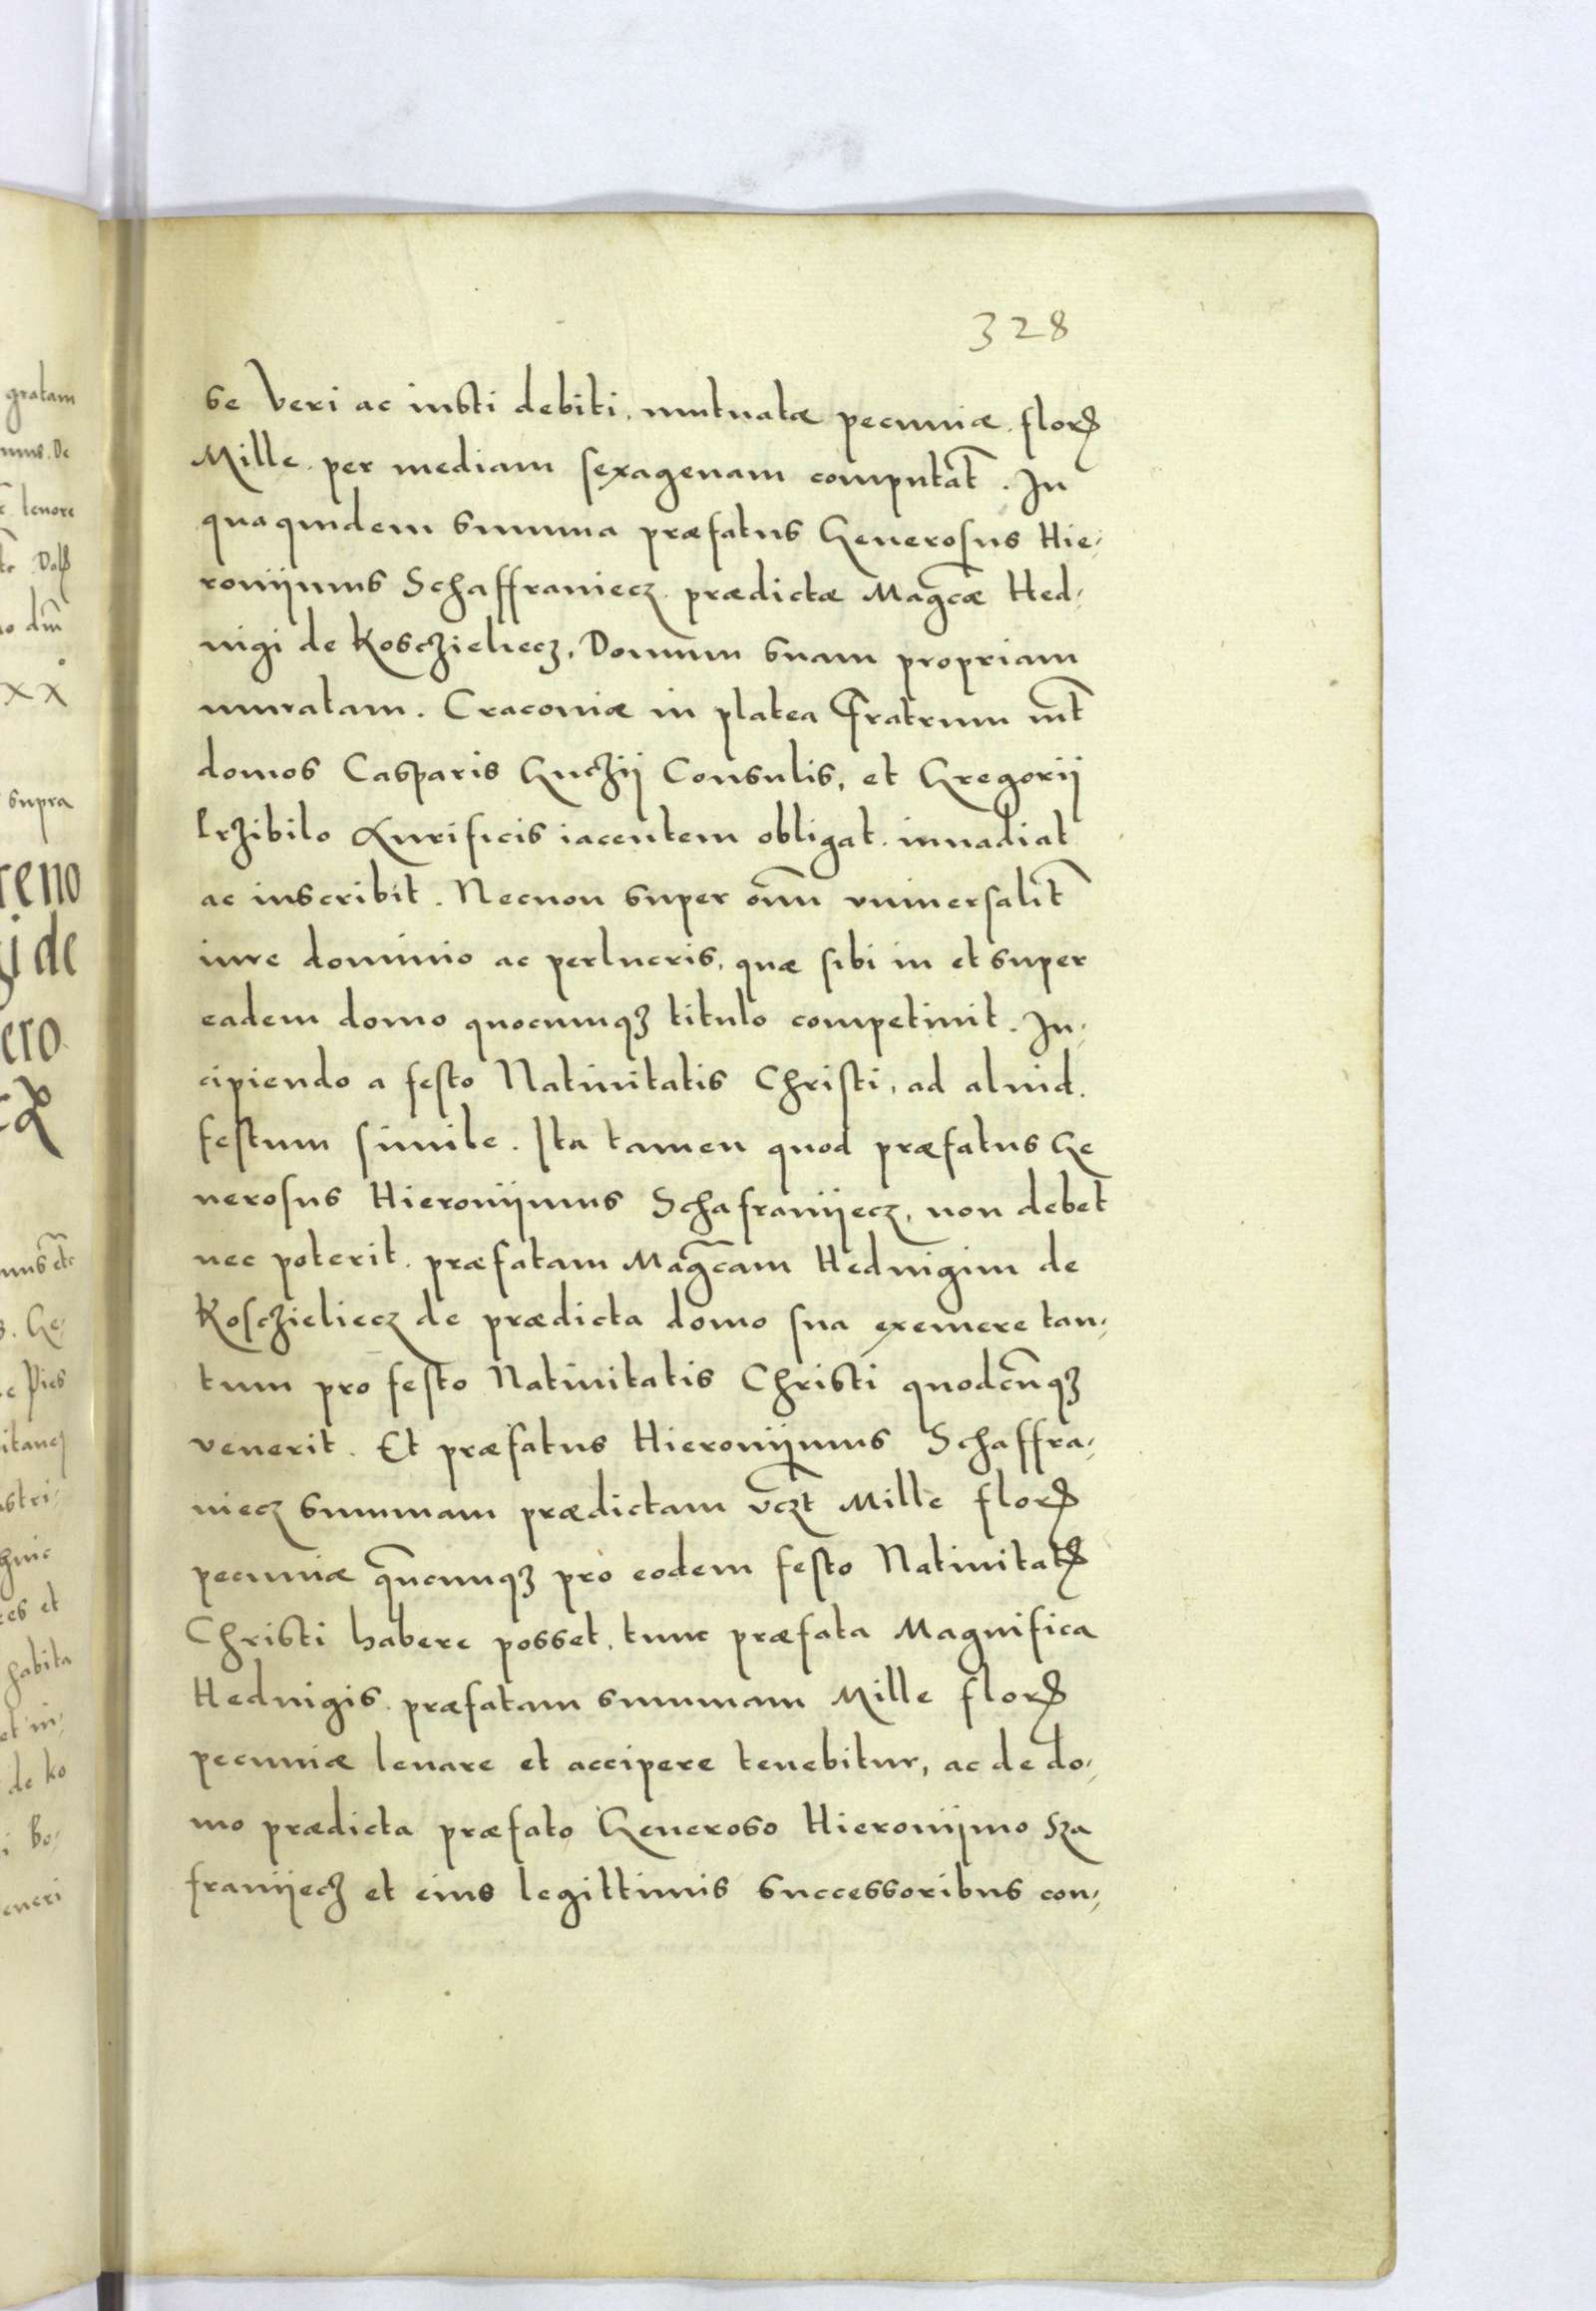 328
se veri ac iusti debiti. mutuatæ pecuniæ. florꝭ
Mille. per mediam sexagenam computat̃. In
quaquidem summa præfatus Generosus Hie-
ronijmus Schaffraniecz. prædictæ Mag̃cæ Hed-
uigi de Kosczieliecz. Domum suam propriam
muratam. Craconiæ in platea Fratrum int̃
domos Casparis Guczij Consulis, et Gregorii
Przibilo Aurificis iacentem obligat. inuadiat
ac inscribit. Necnon super om̃i vniuersalit̃
iure dominio ac perlucris, quæ sibi in et super
eadem domo quocumqꝫ titulo competiuit. In-
cipiendo a festo Natiuitatis Christi, ad aluid.
festum simile. Ita tamen quod præfatus Ge
nerosus Hieronijmus Schafranijecz, non debet
nec poterit. præfatam Mag̃cam Heduigim de
Kosczieliecz de prædicta domo sua exemere tan-
tum pro festo Natiuitatis Christi quodcũqꝫ
venerit. Et præfatus Hieronijmus Schaffra-
niecz summam prædictam vcz̃t Mille florꝭ
pecuniæ q̃ncumqꝫ pro eodem festo Natiuitatꝭ
Christi habere posset, tunc præfata Magnifica
Heduigis. præfatam summam Mille florꝭ
pecuniæ leuare et accipere tenebitur, ac de do-
mo prædicta præfato Generoso Hieronijmo Sza
franijecz et eius legittimis successoribus con-